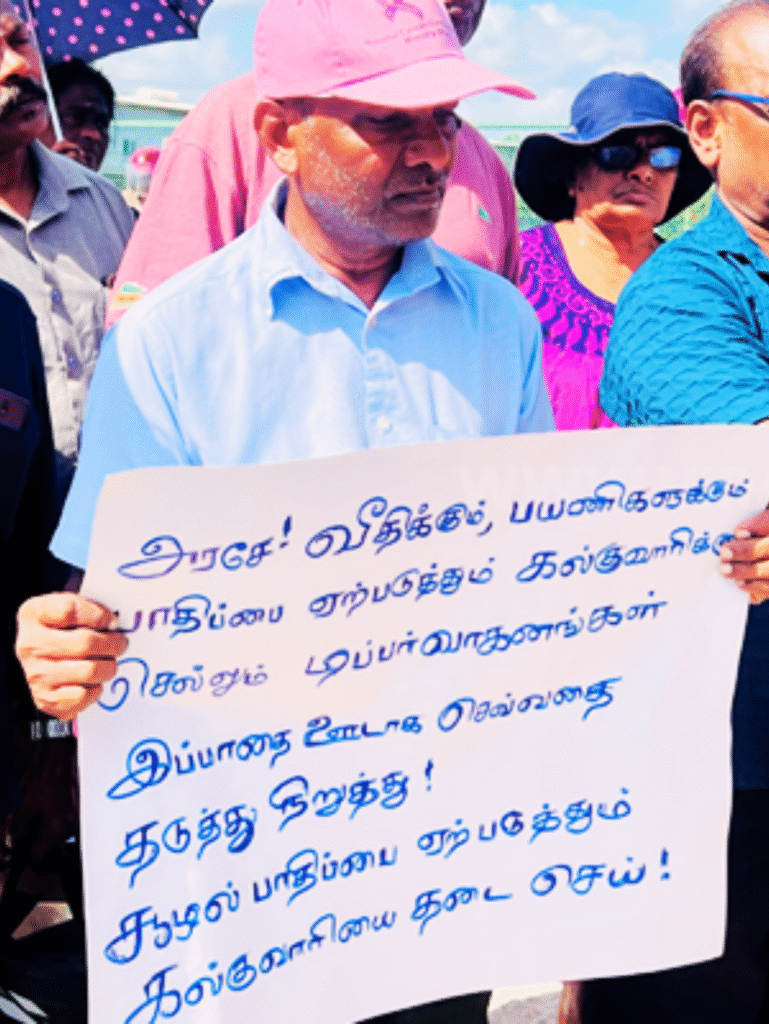 அரசே! வீதிக்கும், பயணிகளுக்கும்
பாதிப்பை ஏற்படுத்தும் கல்குவாரிக்கு
செல்லும் டிப்பர்வாகனங்கள்
இப்பாதை ஊடாக செல்வதை
தடுத்து நிறுத்து!
சூழல் பாதிப்பை ஏற்படுத்தும்
கல்குவாரியை தடை செய்!